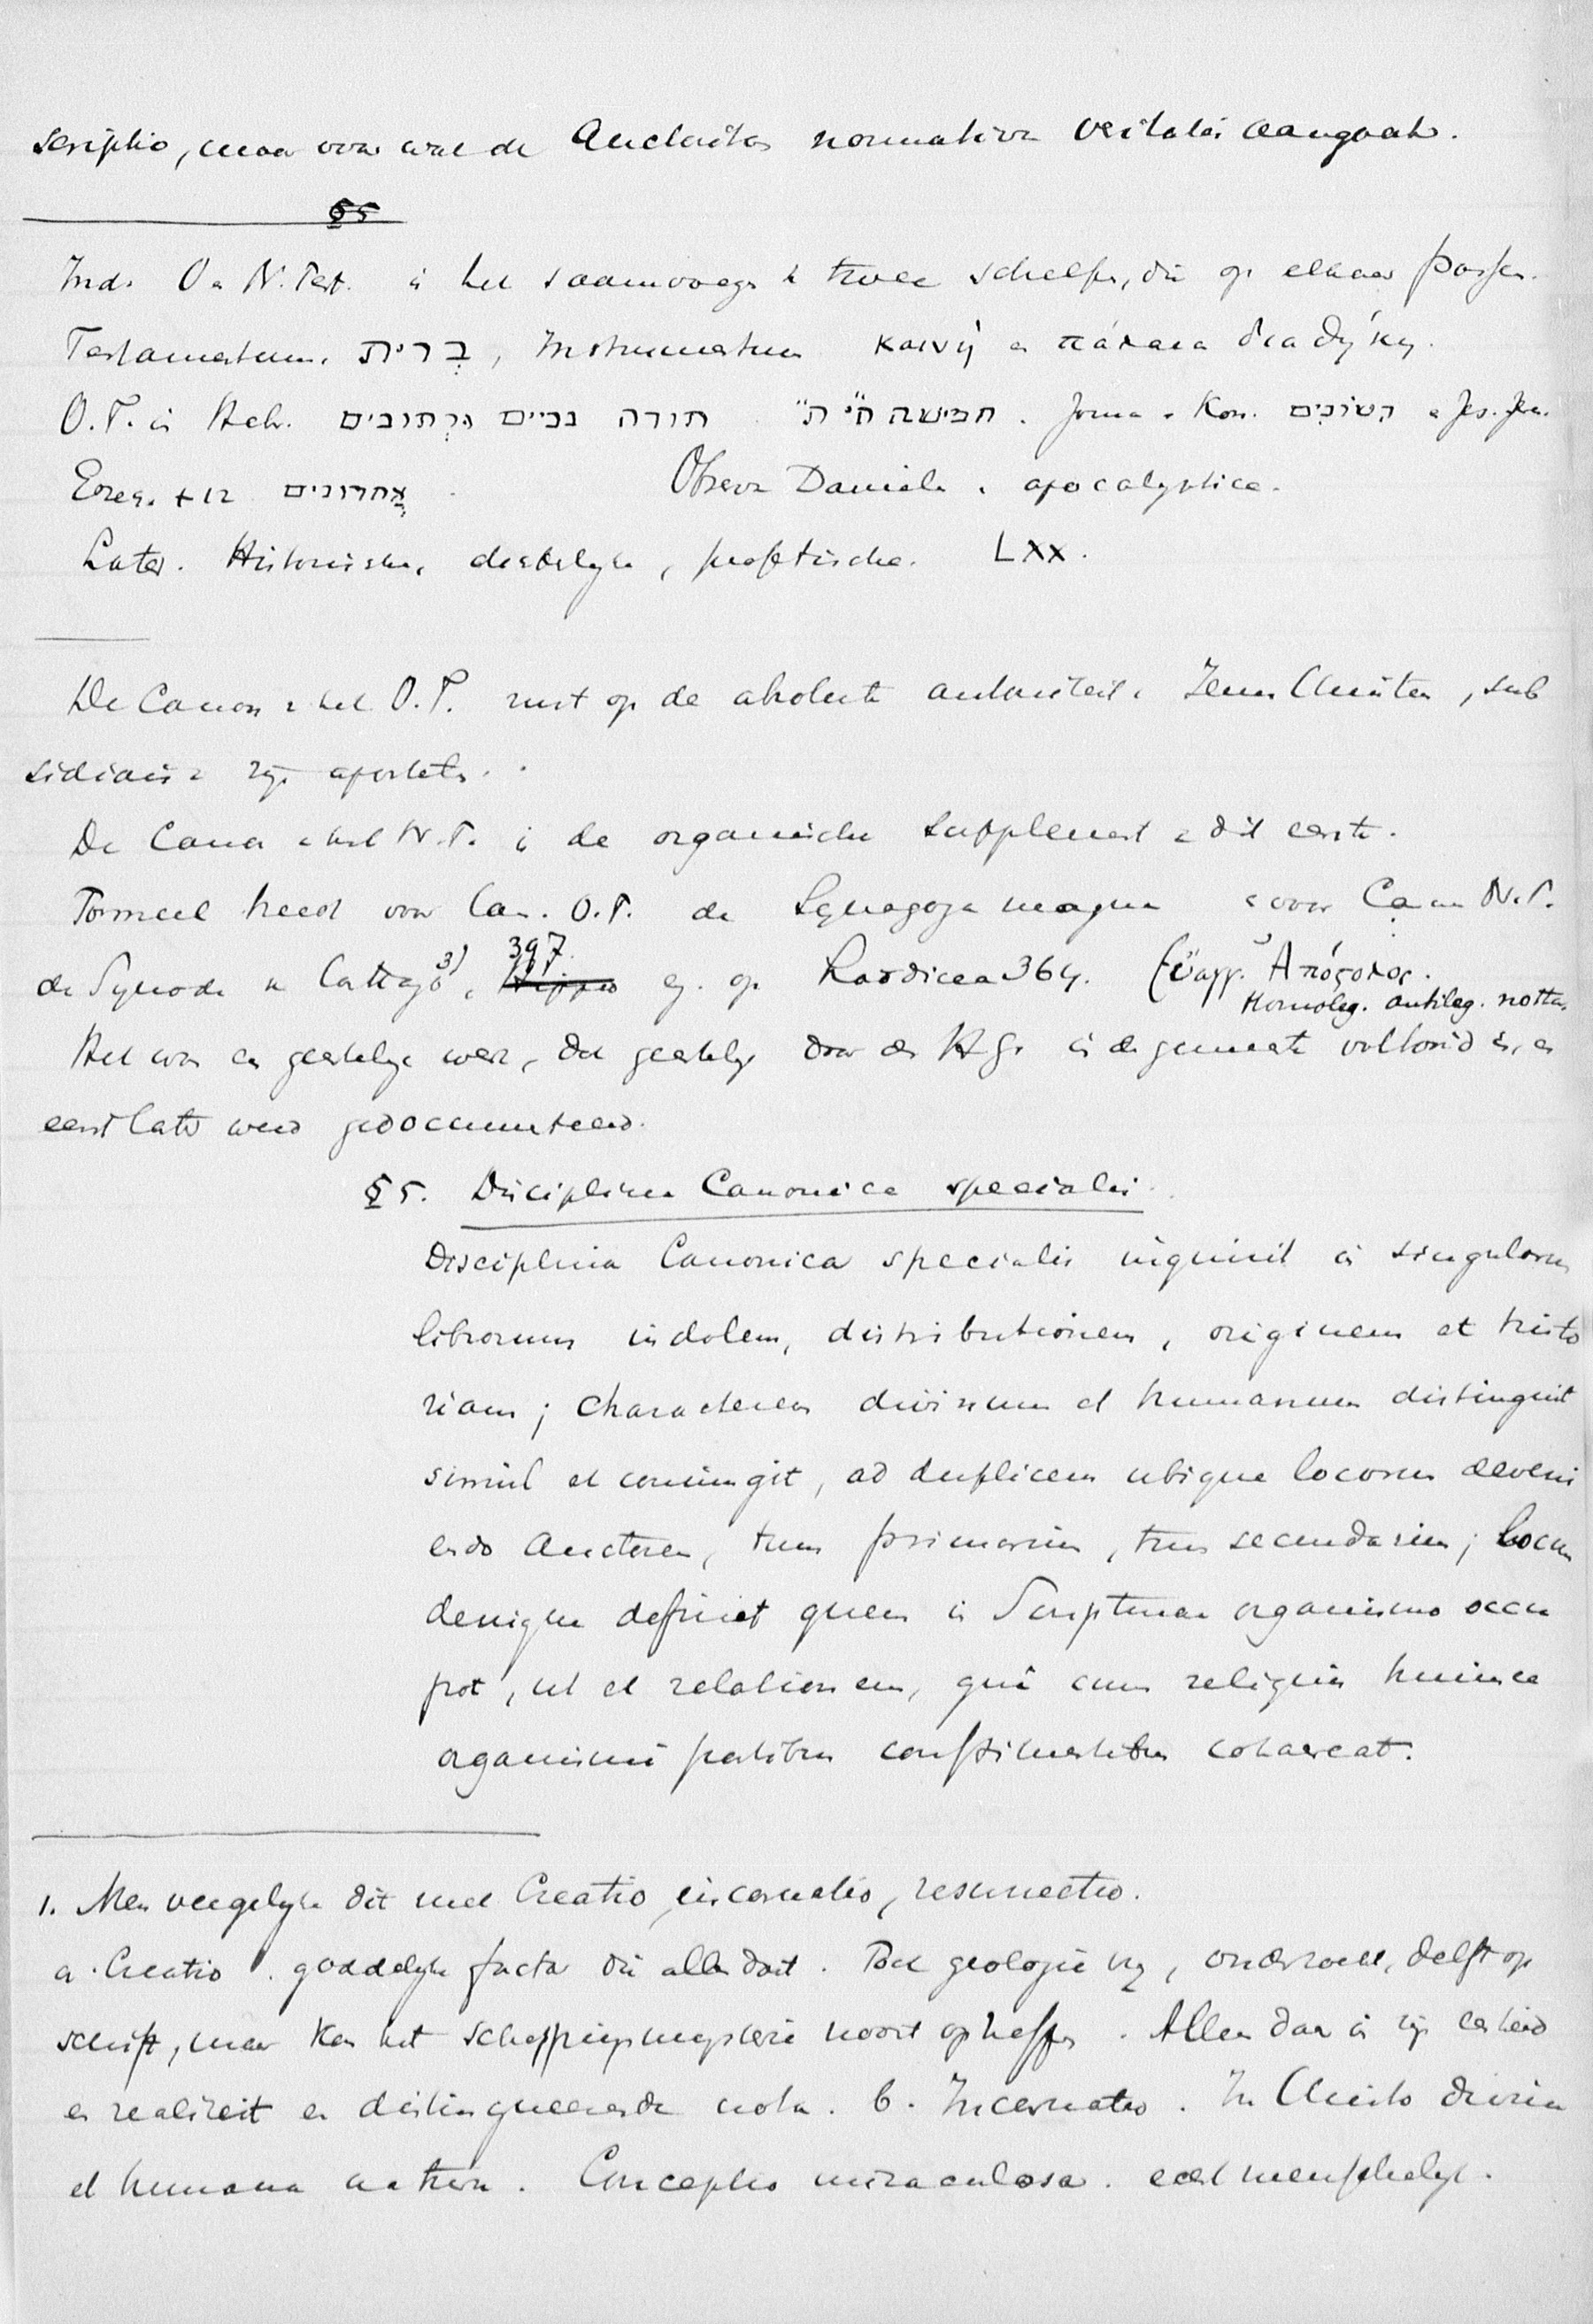 scriptio, maar voor wat de Auctoritas normativa veritatis aangaat.
§5
Ind. O en N. Test. is het saamvoegen v twee schelpen, die op elkaar passen.
Testamentum. בְּרִית, Instrumentum καινή en πάλαια διαθήκη.
O.T. in Hebr. תורה נביים וכתובים . Josua - Kon. ראשונים en Jes. Jer.
Ezech. + 12 אַחֲרוֹנִים . Observ Daniel apocalyptica.
Later. Historische, dichterlijke, profetische. LXX.
De Canon v het O.T. rust op de absolute autoriteit v Jezus Christus, sub
sidiair v zijn apostelen.
De Canon v het N.T. is de organische supplement v dit eerste.
Formeel heeft voor Can. O.T. de Synagoga magna en voor Canon N.T.
de Synode v Cartago 3) 397. Hippo en op Laodicea 364. Εὐαγγ. Ἀπόστολος.
Homoleg. antileg. notha.
Het was een geestelijk werk, dat geestelijk door den H.G. in de gemeente voltooid is, en
eerst later werd gedocumenteerd.
§ 5. Disciplina Canonica specialis.
Disciplina Canonica specialis inquirit in singulorum
librorum indolem, distributionem, originem et histo
riam; characterem divinum et humanum distinguit
simul et coniungit, ad duplicem ubique locorum deveni
endo Auctorem, tum primarium, tum secundarium; locum
denique definiet quem in Scripturae organismo occu
pat, ut et relationem, qua cum reliquis huiusce
organismi partibus constituentibus cohaereat.
1. Men vergelijke dit met Creatio, incarnatio, resurrectio.
a. Creatio. goddelijke facta die alleen doet. Toch geologie vrij, onderzoekt, delft op
schift, maar kan het scheppingsmysterie nooit opheffen. Alleen daar in zijn eenheid
en realiteit en distingueerende nota. b. Incarnatio. In Christo divina
et humana natura. Conceptio miraculosa. echt menschelijk.